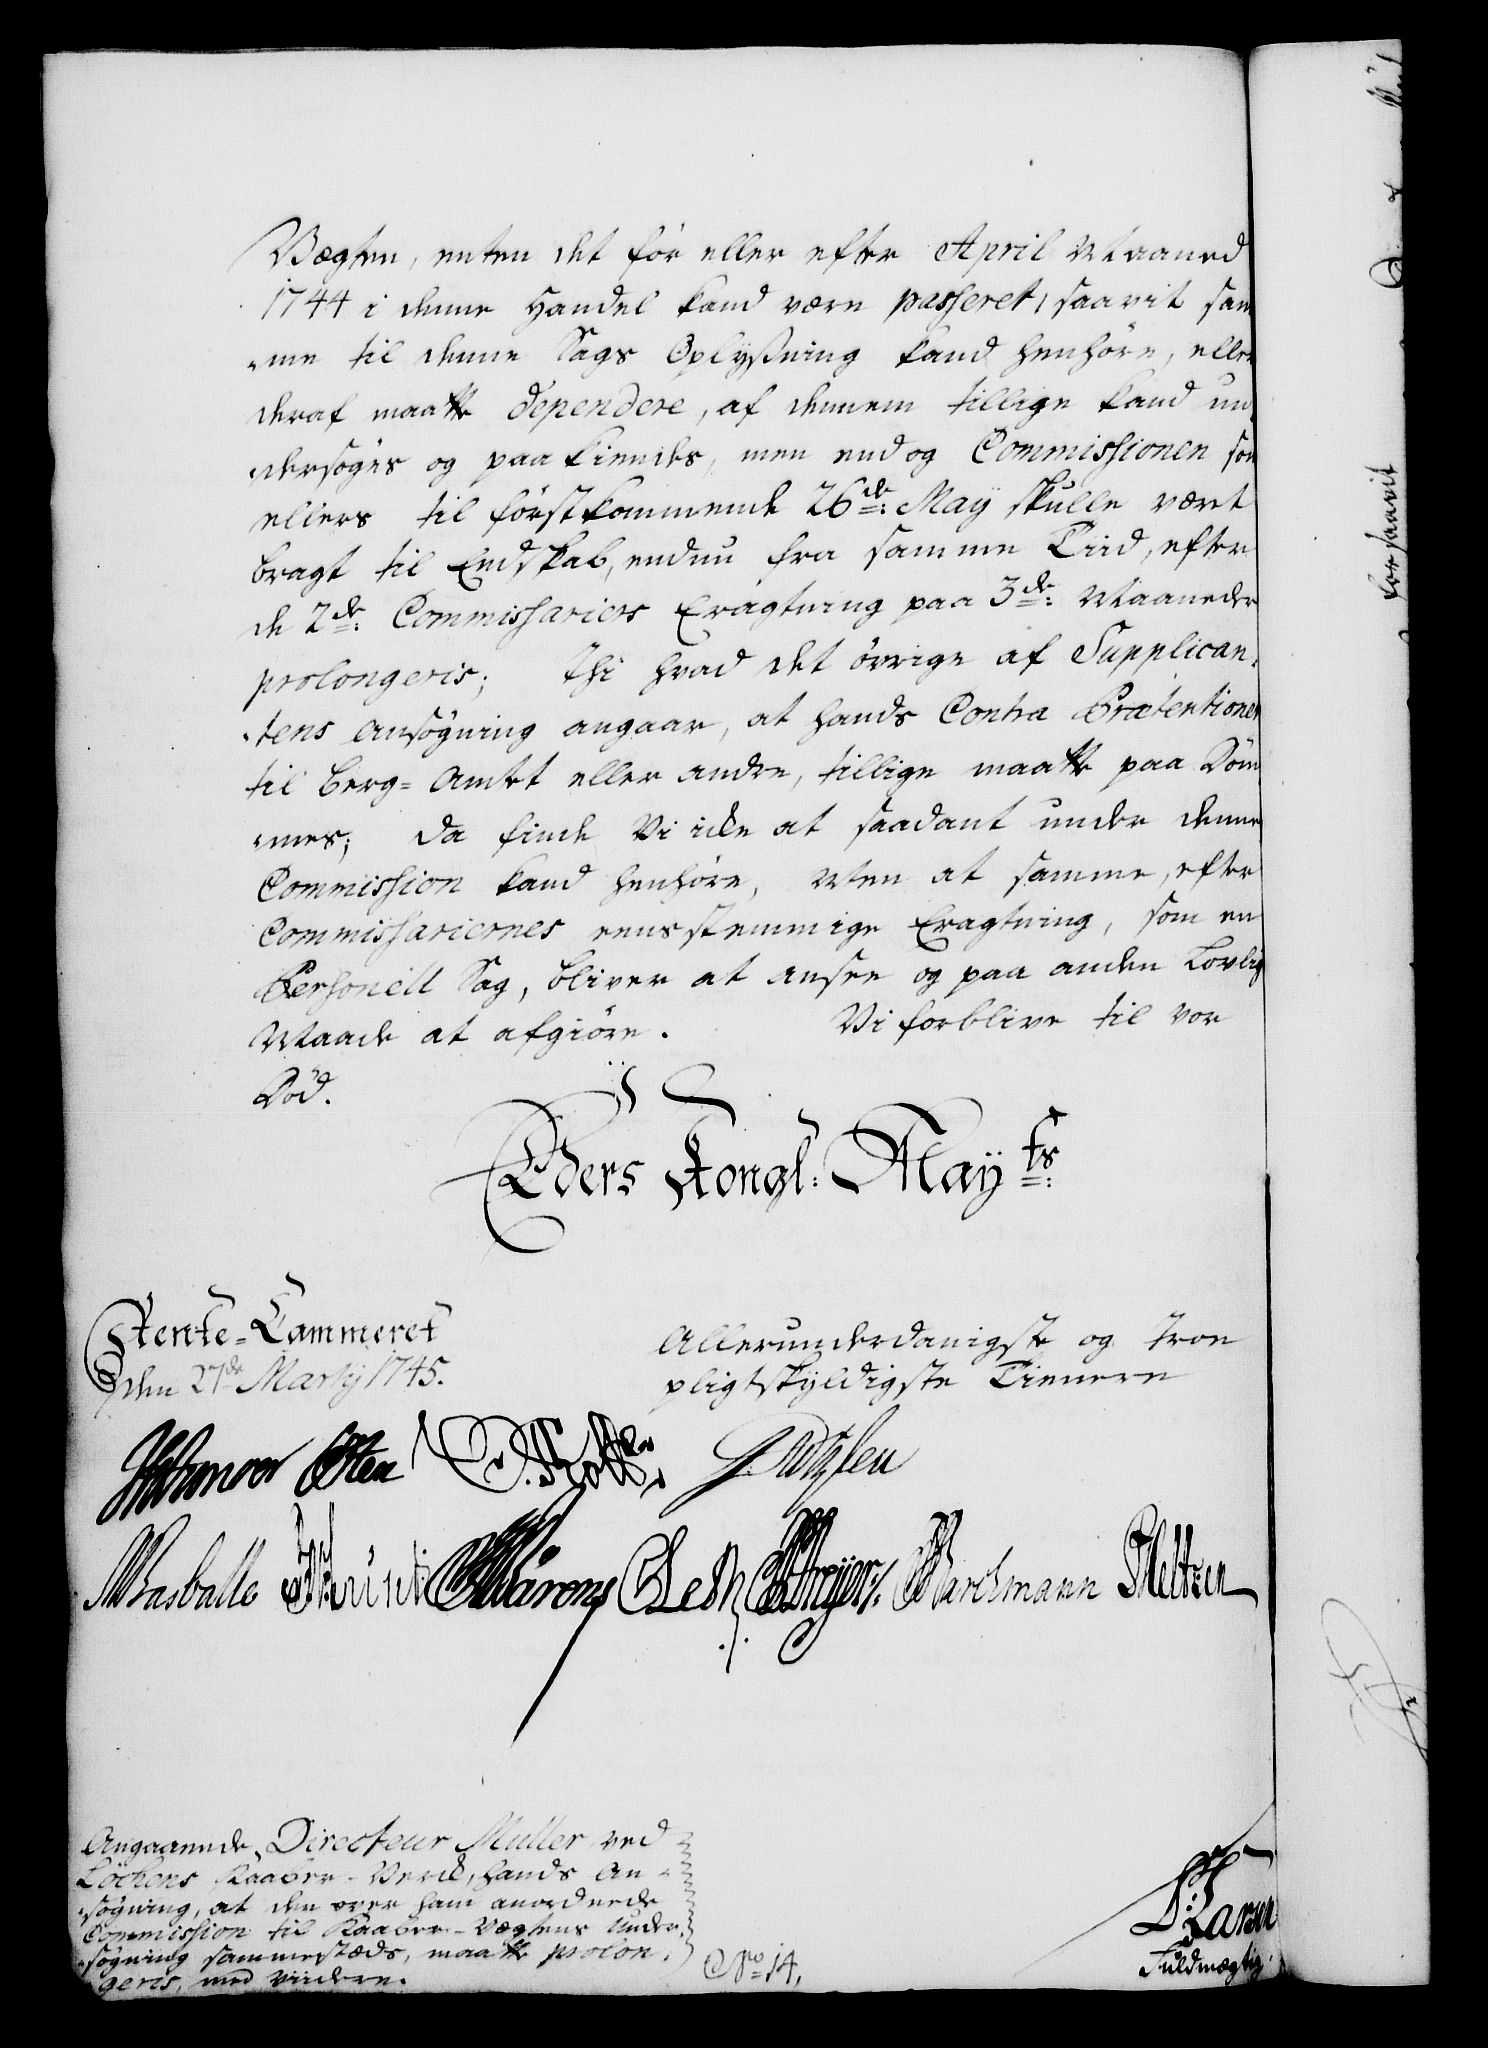 Vægten, enten det før eller efter April Maaned
1744 i denne Handel kand være passeret, saavit sam
-me til denne Sags Oplysning kand henhøre, eller
deraf maatte dependere, af dennem tillige kand un-
dersøges og paakiendes, men end og Commissionen som
ellers til førstkommende 26de: May skulle være
bragt til Endskab, endnu fra samme Tiid, efter
de 2de: Commissariers Eragtning paa 3de: Maaneder
prolongeris; Thi hvad det øvrige af Supplican-
-tens Ansøgning angaar, at hands Contra Prætentioner
til Berg-Amtet eller andre, tillige maatte paa Døm
-mes; Da finde Vi icke at saadant under denne
Commission kand henhøre, Men at samme, efter
Commissariernes eensstemmige Eragtning, som en
Personell Sag, bliver at ansee og paa anden Lovlig
Maade at afgiøre. Vi forblive til vor
Død.
Eders Kongl: Mayts:
Rente-Cammeret
den 27de Martÿ 1745.
Allerunderdanigste og Troe
pligtskyldigste Tienere
Angaaende, Directeur Müller ved
Løckens Kaaber-Verck, hands An-
-søgning, at den over ham anordnede
Commission til Kaaber-Vægtens Under-
-søgning sammestæds, maatte prolon-
geris, med videre.
No 14.
Larsen
Fuldmægtig.
for saavit